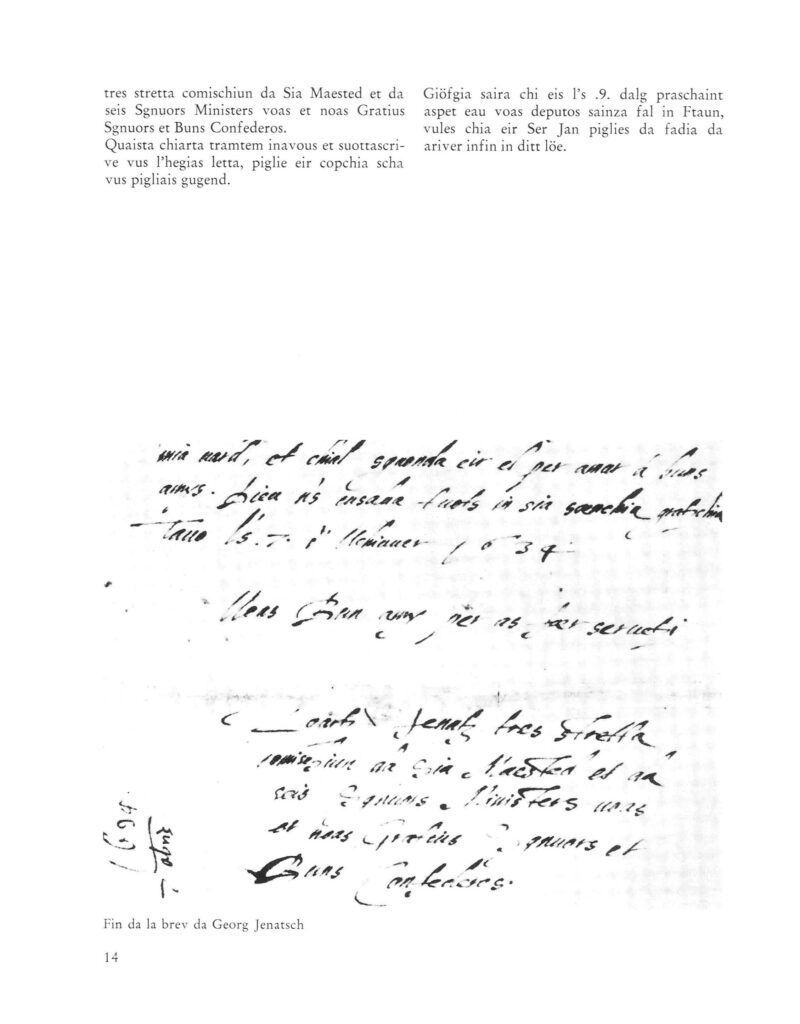 tres stretta comischiun da Sia Maested et da
seis Sgnuors Ministers voas et noas Gratius
Sgnuors et Buns Confederos.
Quaista chiarta tramtem inavous et suottascri-
ve vus l'hegias letta, piglie eir copchia scha
vus pigliais gugend.
Giöfgia saira chi eis l's .9. dalg praschaint
aspet eau voas deputos sainza fal in Ftaun,
vules chia eir Ser Jan piglies da fadia da
ariver infin in ditt löe.
et chial spenda eir el per amur da buns
amys. in sia sanchia gratschia
1634
Voas Bun amy per as fær seructi
Jenatz tres stretta
comischiun da Sia Maested et da
seis Sgnuors Ministers voas
et noas Gratius Sgnuors et
Buns Confederos.
Fin da la brev da Georg Jenatsch
14